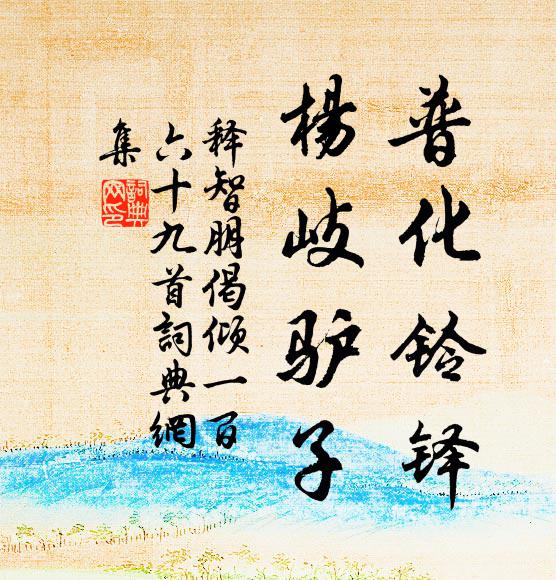 普化铃铎
楊岐驴子
释智朋偈倾一百
六十九首詞典網
集
詞典网印